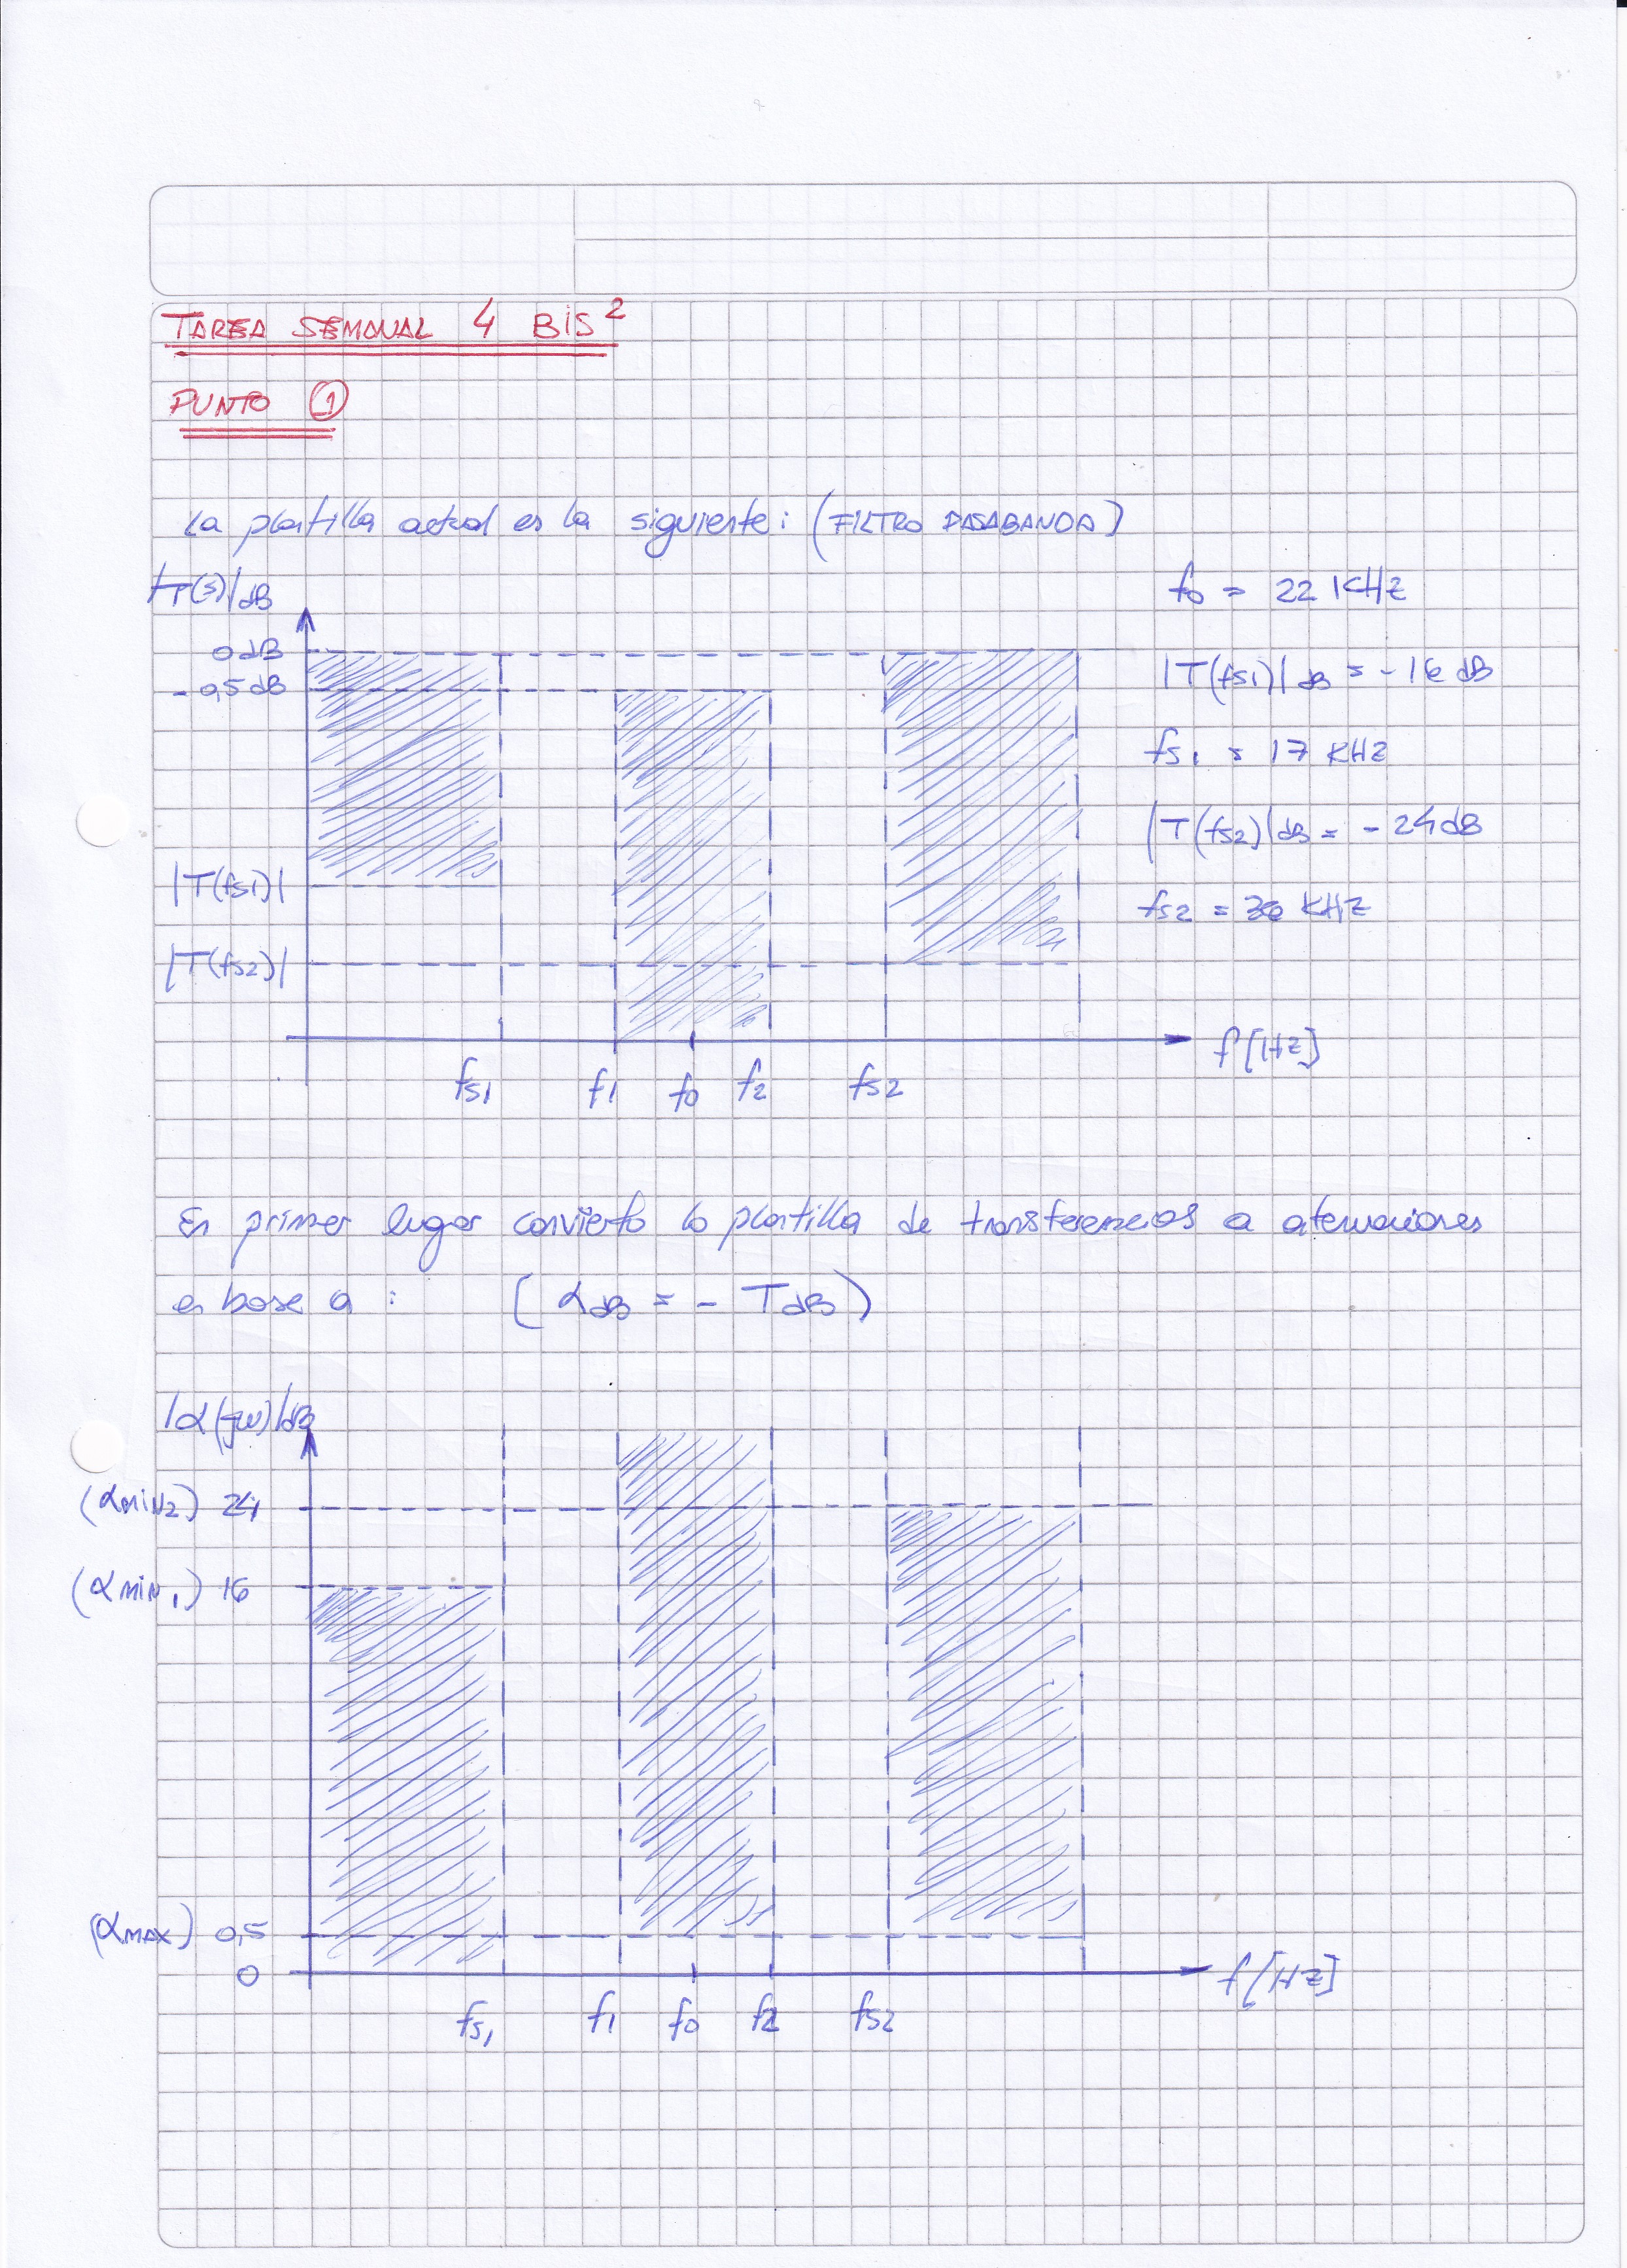 TAREA SEMANAL 4 BIS²
PUNTO ①
La plantilla actual es la siguiente: (FILTRO PASABANDA)
|T(s)|dB
f0 = 22 KHz
0 dB
|T(fs1)|dB = -16 dB
-0,5 dB
fs1 = 17 KHz
|T(fs2)|dB = -24 dB
|T(fs1)|
fs2 = 36 KHz
|T(fs2)|
f[Hz]
fs1 f1 f0 f2 fs2
En primer lugar convierto la plantilla de transferencias a atenuaciones
en base a: (αdB = - TdB)
|α(jw)|dB
(αMIN2) 24
(αMIN1) 16
(αMAX) 0,5
0
f[Hz]
fs1 f1 f0 f2 fs2